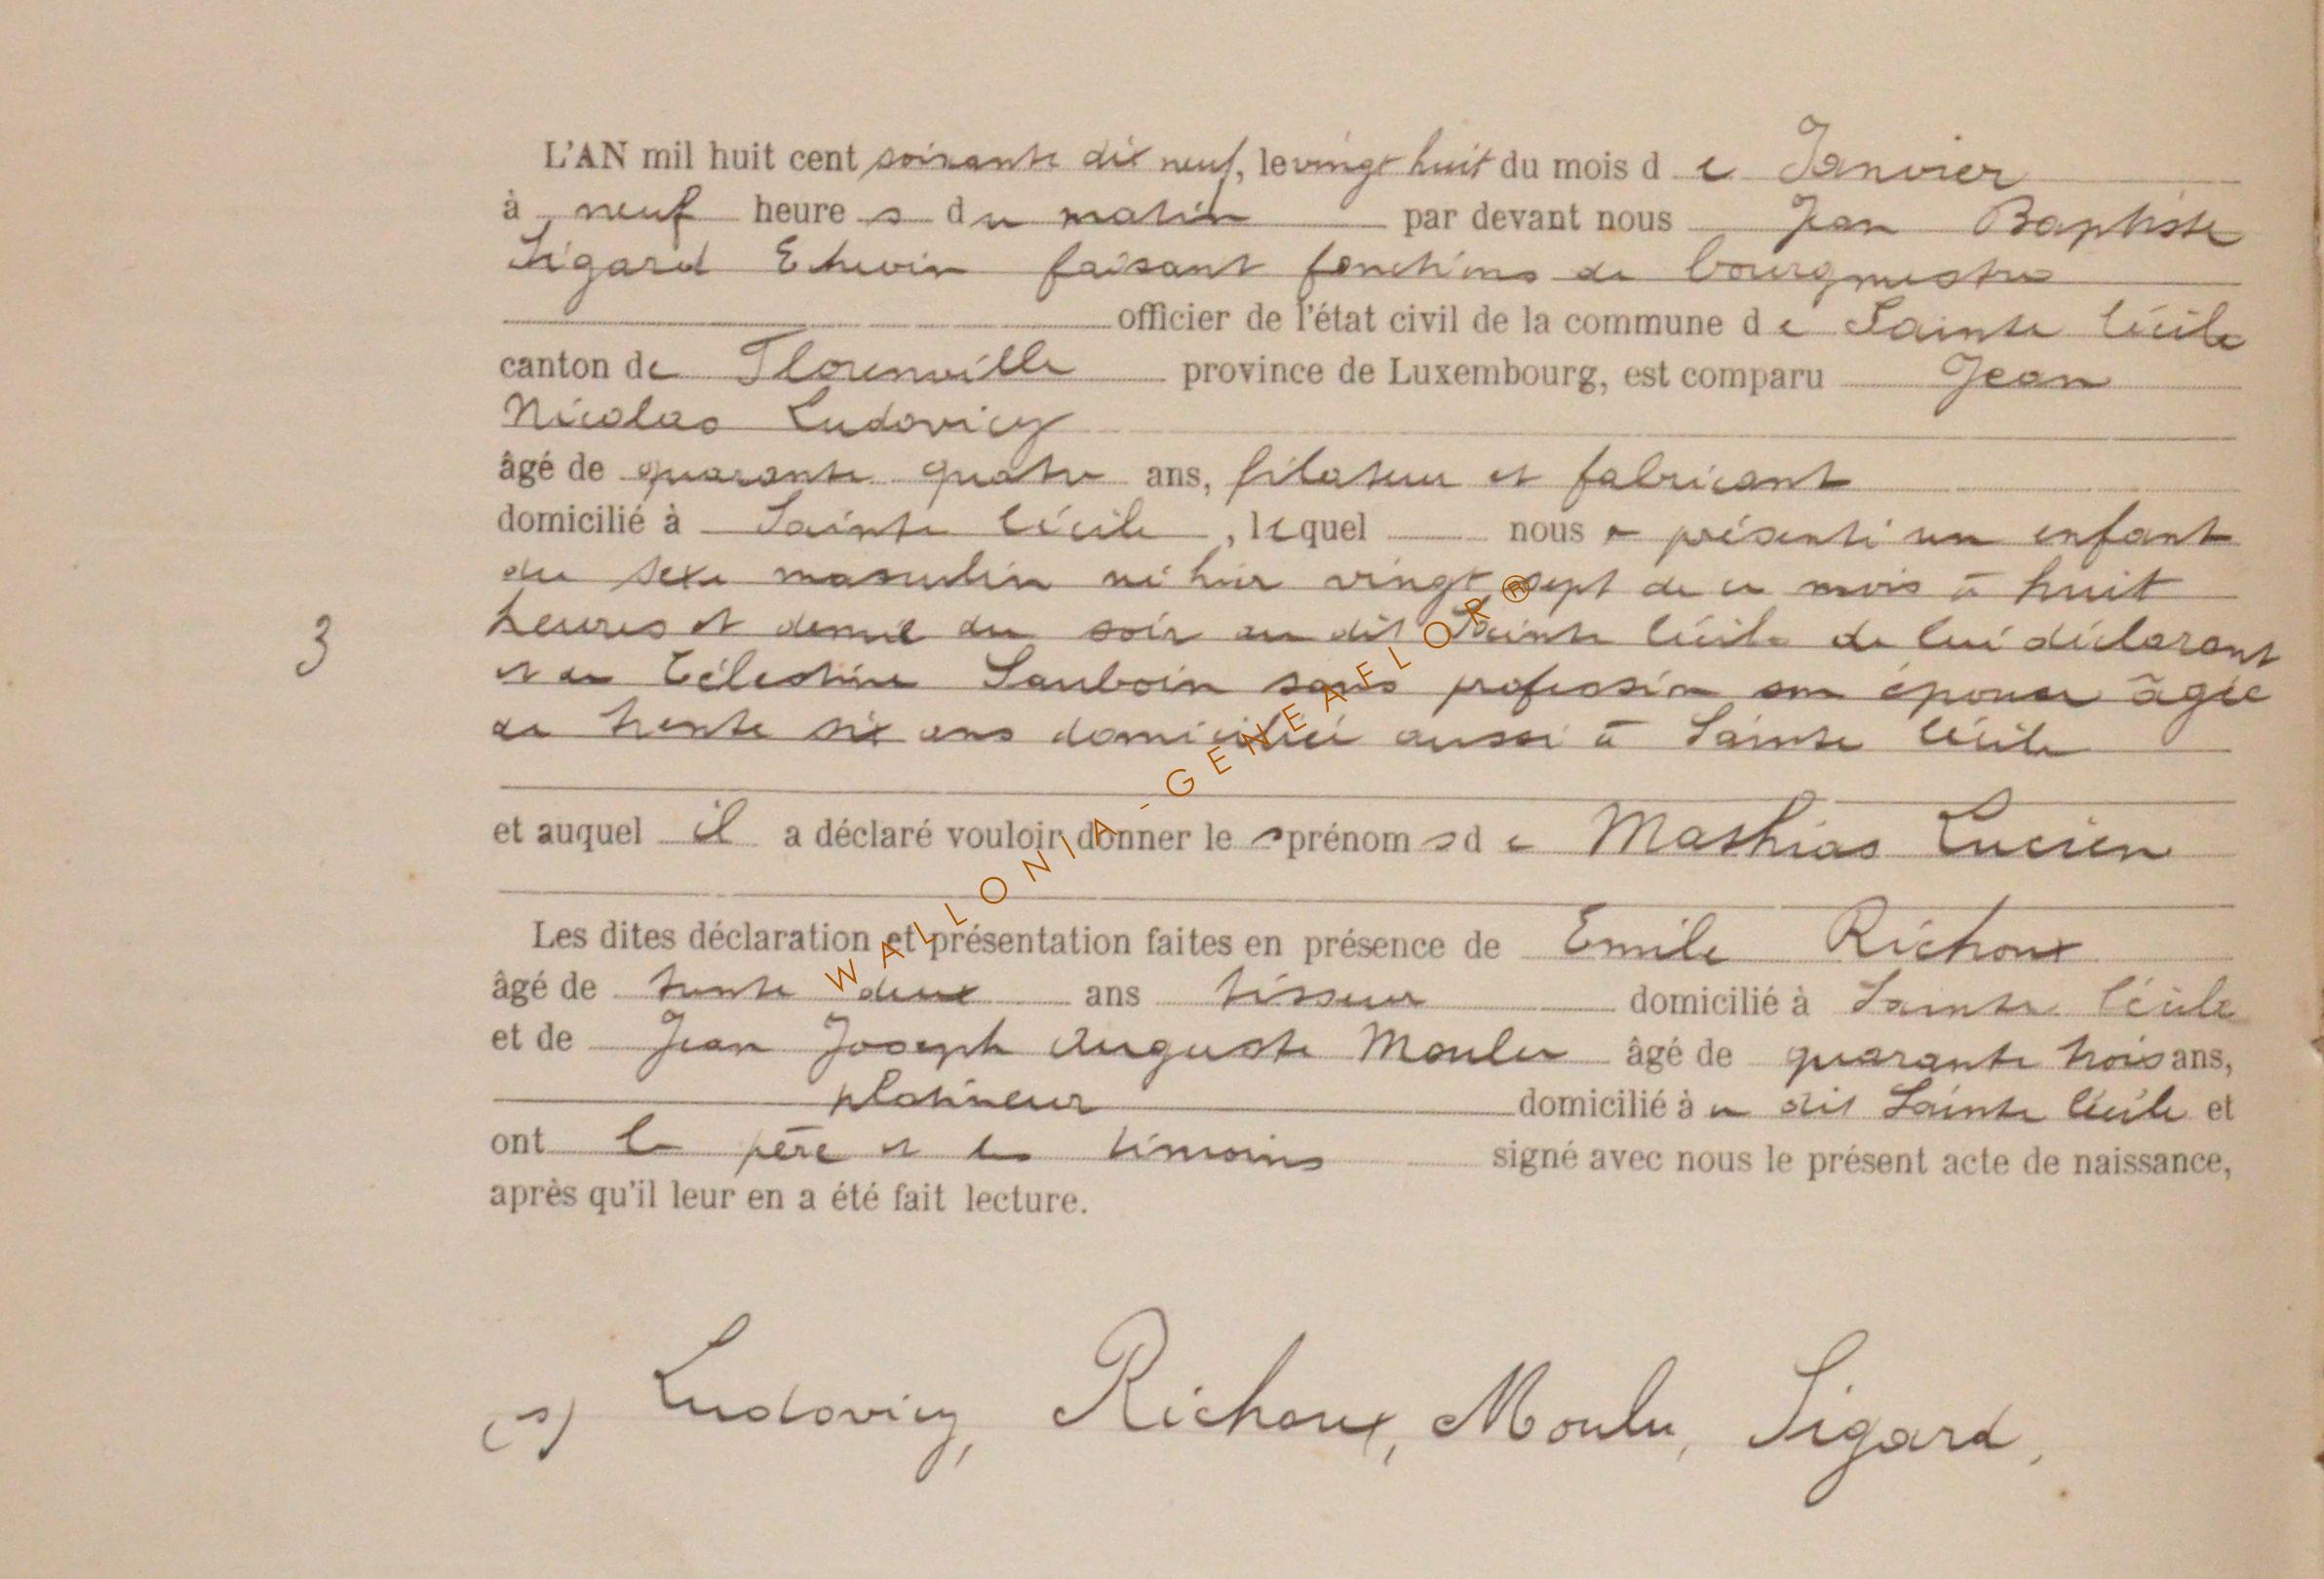 L'AN mil huit cent soixante dix neuf, le vingt huit du mois de Janvier
à neuf heures du matin par devant nous Jean Baptiste
Sigard Echevin faisant fonctions de bourgmestre
officier de l'état civil de la commune de Sainte Cécile
canton de Florenville province de Luxembourg, est comparu Jean
Nicolas Ludovicy
âgé de quarante quatre ans, filateur et fabricant
domicilié à Sainte Cécile, lequel nous a présenté un enfant
du sexe masculin né hier vingt sept de ce mois à huit
heures et demie du soir au dit Sainte Cécile de lui déclarant
3
et de Célestine Sauboin sans profession son épouse âgée
de trente six ans domiciliée aussi à Sainte Cécile
et auquel il a déclaré vouloir donner les prénoms de Mathias Lucien
Les dites déclaration et présentation faites en présence de Emile Richoux
âgé de trente deux ans tisseur domicilié à Sainte Cécile
et de Jean Joseph Auguste Moulu âgé de quarante trois ans,
platineur domicilié au dit Sainte Cécile et
ont le père et les témoins signé avec nous le présent acte de naissance,
après qu'il leur en a été fait lecture.
(s) Ludovicy, Richoux, Moulu, Sigard,
WALLONIA-GENEAELOR®